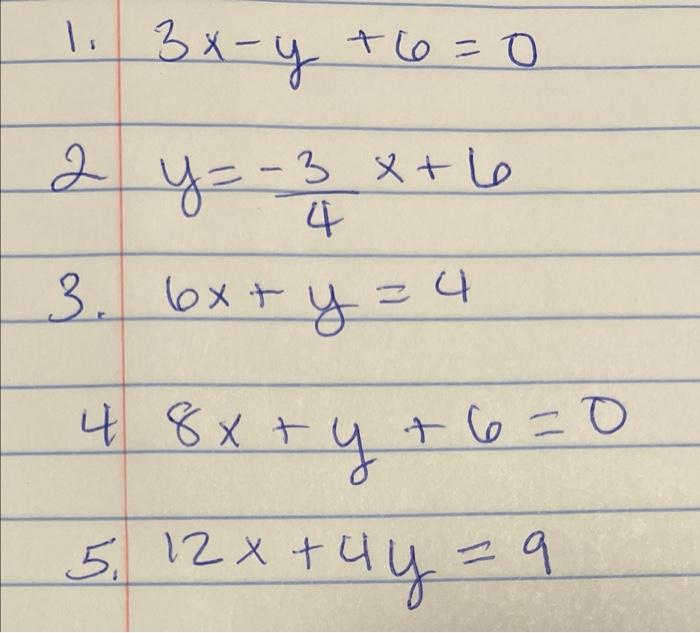 1. 3x - y + 6 = 0
2 y = -3/4 x + 6
3. 6x + y = 4
4 8x + y + 6 = 0
5. 12x + 4y = 9